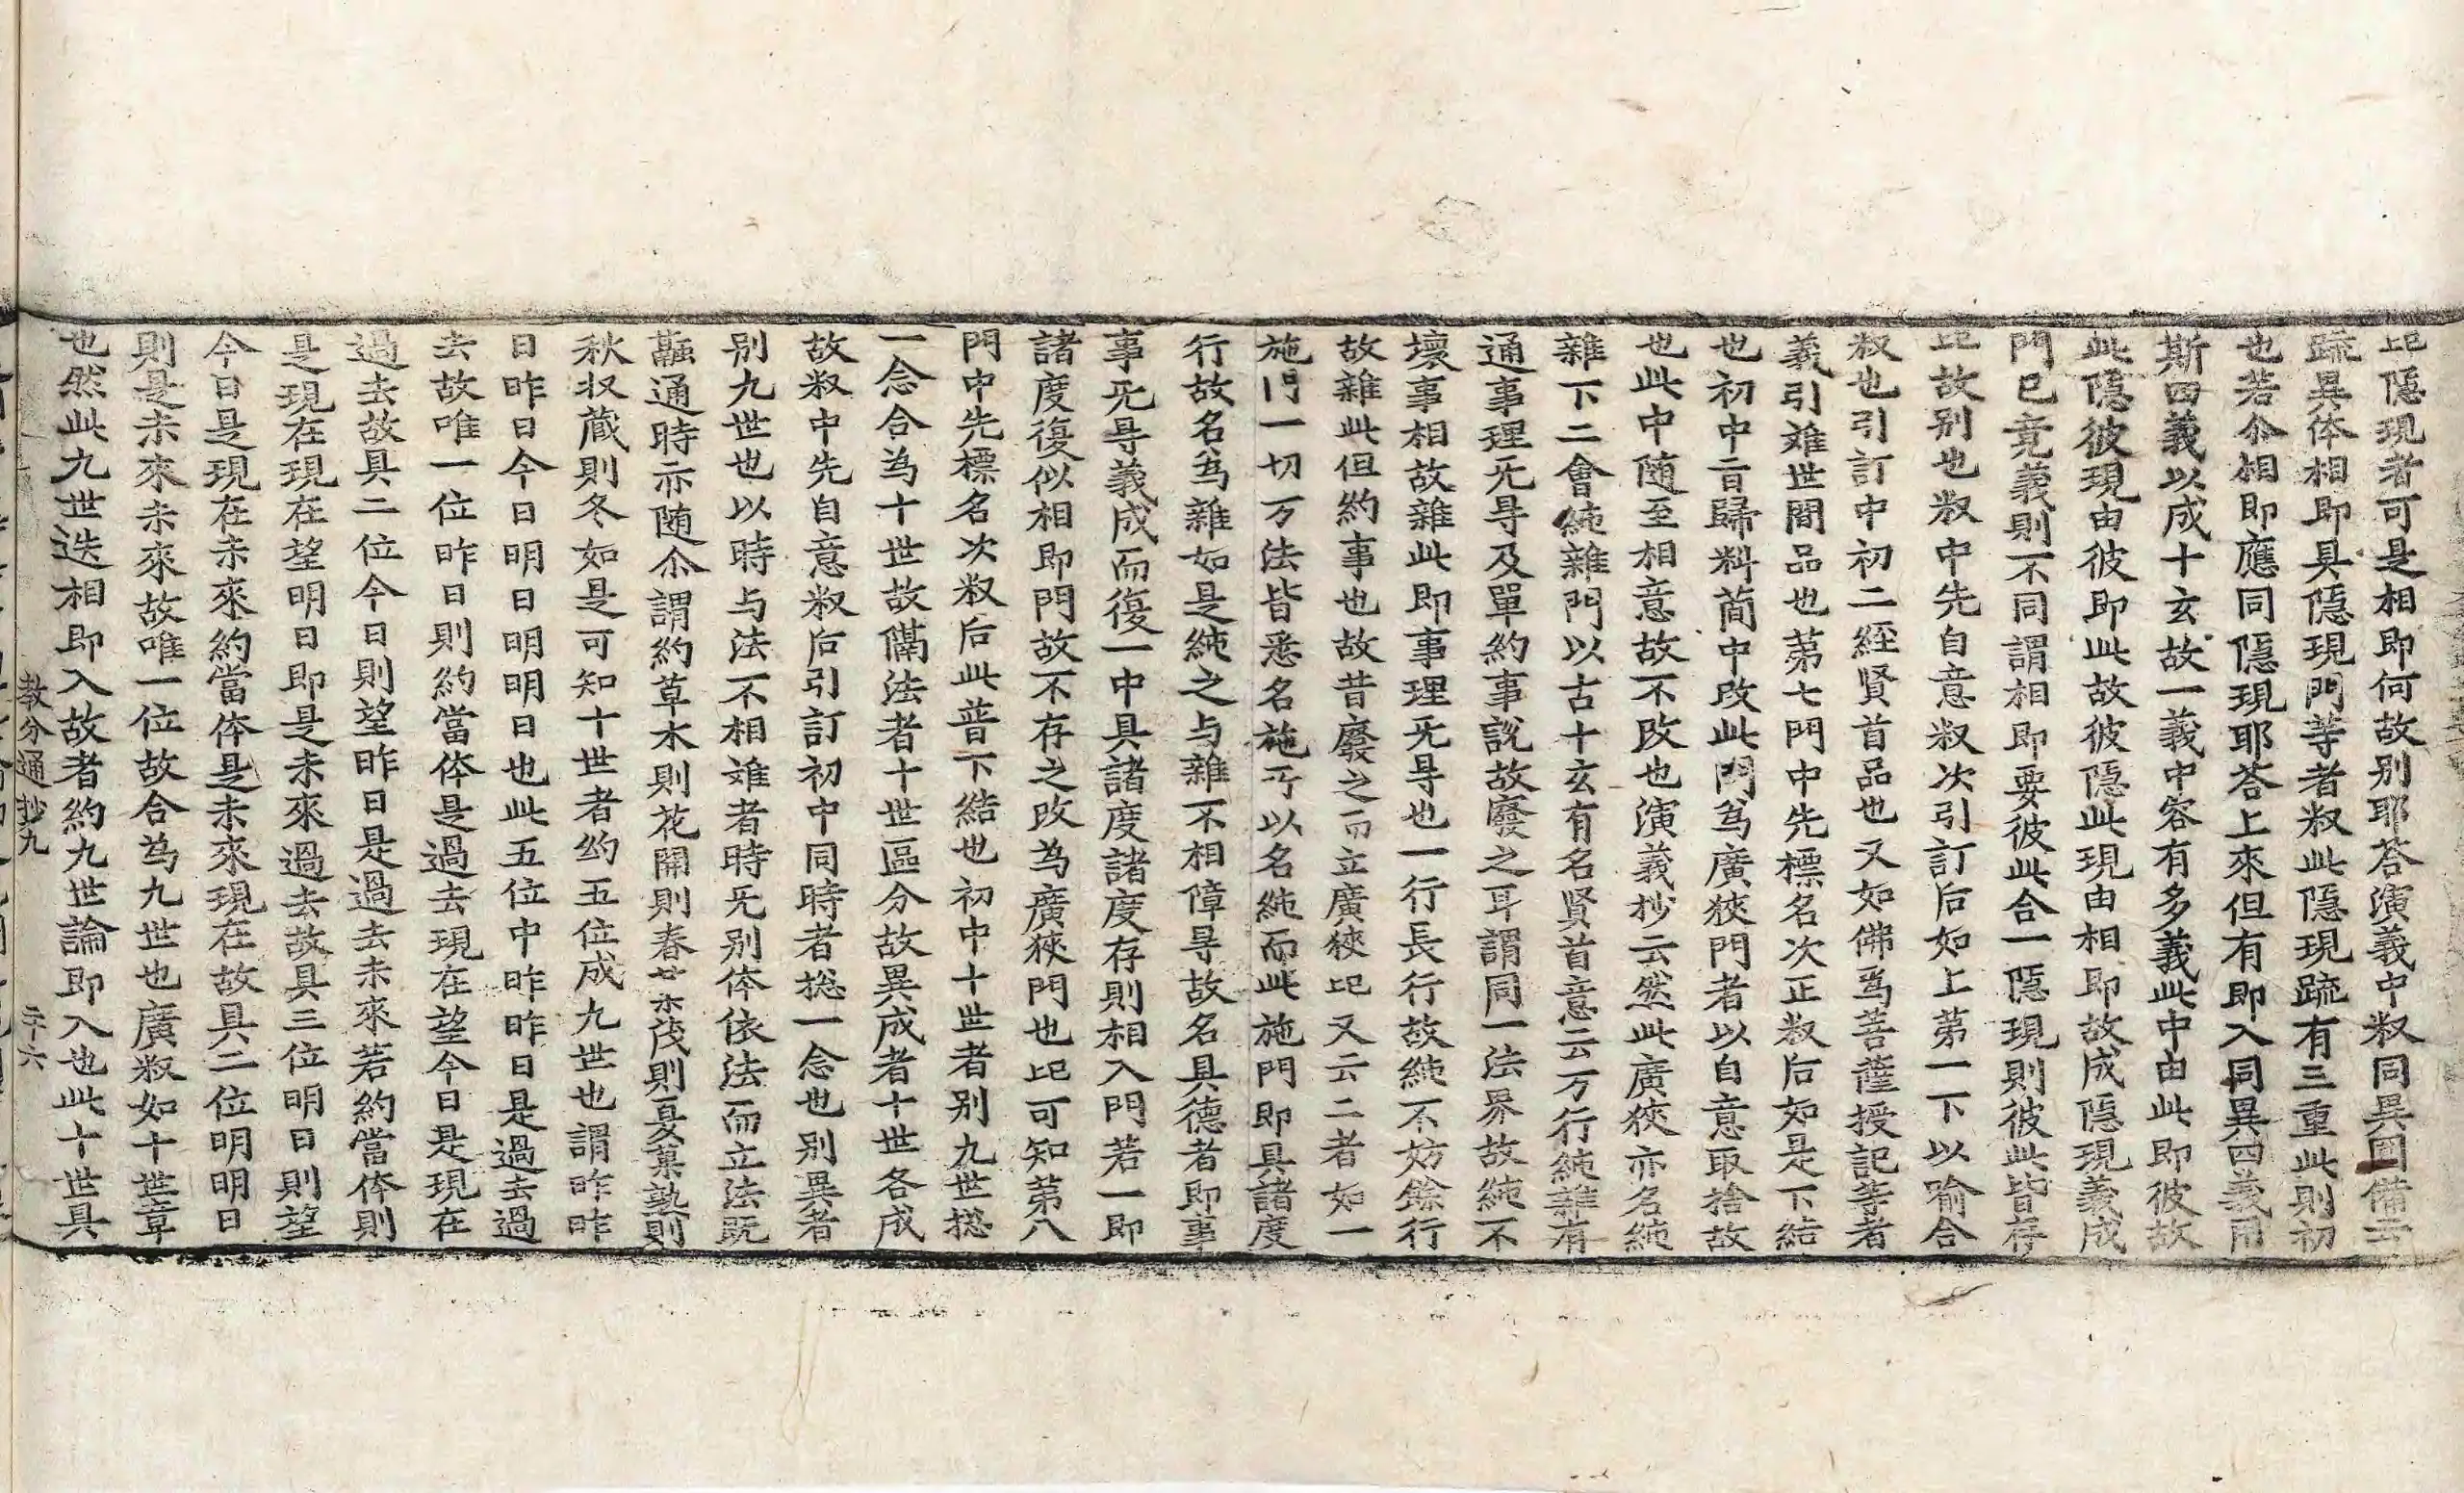 此隱現者可是相即何故別耶荅演義中叙同異圎備云
䟽異体相即具隱現門等者叙此隱現疏有三重此則初
也若尒相即應同隱現耶荅上來但有即入同異四義用
斯四義以成十玄故一義中容有多義此中由此即彼故
此隱彼現由彼即此故彼隱此現由相即故成隱現義成
門已竟義則不同謂相即要彼此合一隱現則彼此皆存
此故別也叙中先自意叙次引訂后如上苐一下以喻合
叙也引訂中初二經賢首品也又如佛爲菩薩授記等者
義引难世間品也苐七門中先標名次正叙后如是下結
也初中言歸料簡中改此門爲廣狹門者以自意取捨故
也此中随至相意故不改也演義抄云然此廣狹亦名純
雜下二會純雜門以古十玄有名賢首意云万行純雜有
通事理旡㝵及單約事說故廢之耳謂同一法界故純不
壞事相故雜此即事理旡㝵也一行長行故純不妨餘行
故雜此但約事也故昔廢之而立廣狹此又云二者如一
施門一切万法皆悉名施㪽以名純而此施門即具諸度
行故名爲雜如是純之与雜不相障㝵故名具德者即事
事旡㝵義成而復一中具諸度諸度存則相入門若一即
諸度復似相即門故不存之改為廣狹門也此可知苐八
門中先標名次叙后此普下結也初中十世者别九世捴
一念合為十世故隔法者十世區分故異成者十世各成
故叙中先自意叙后引訂初中同時者捴一念也别異者
别九世也以時与法不相难者時旡别体依法而立法既
融通時亦随尒謂約草木則花開則春世亦茂則夏菓熟則
秋収蔵則冬如是可知十世者約五位成九世也謂昨昨
日昨日今日明日明明日也此五位中昨昨日是過去過
去故唯一位昨日則約當体是過去現在望今日是現在
過去故具二位今日則望昨日是過去未來若約當体則
是現在現在望明日即是未來過去故具三位明日則望
今日是現在未來約當体是未來現在故具二位明明日
則是未來未來故唯一位故合為九世也廣叙如十世章
也然此九世迭相即入故者約九世論即入也此十世具
教分通抄九 二十六